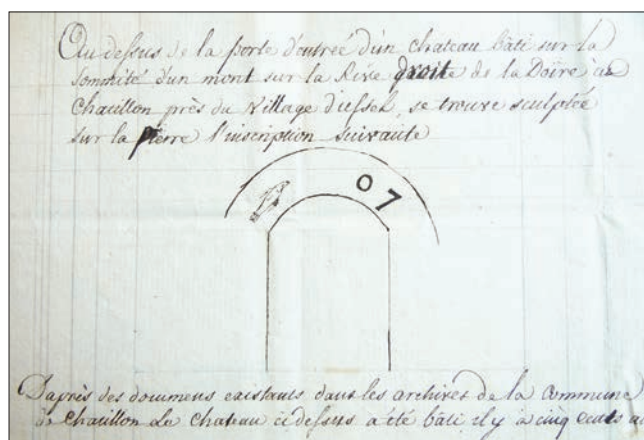 Au dessus de la porte d'entrée d'un chateau bâti sur la
Sommité d'un mont sur la Rive droite de la Doire à
Chatillon près du Village d'ussel, se trouve sculptée
sur la pierre l'inscription suivante
07
D'après des documens existants dans les archives de la Commune
de Chatillon Le Chateau ci dessus a été bâti il y à cinq cents a